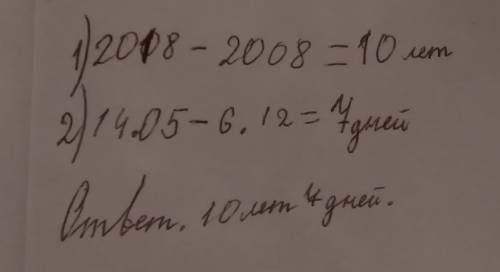 1) 2018 - 2008 = 10 лет
2) 14.05 - 6.12 = 7 дней
Ответ. 10 лет 7 дней.